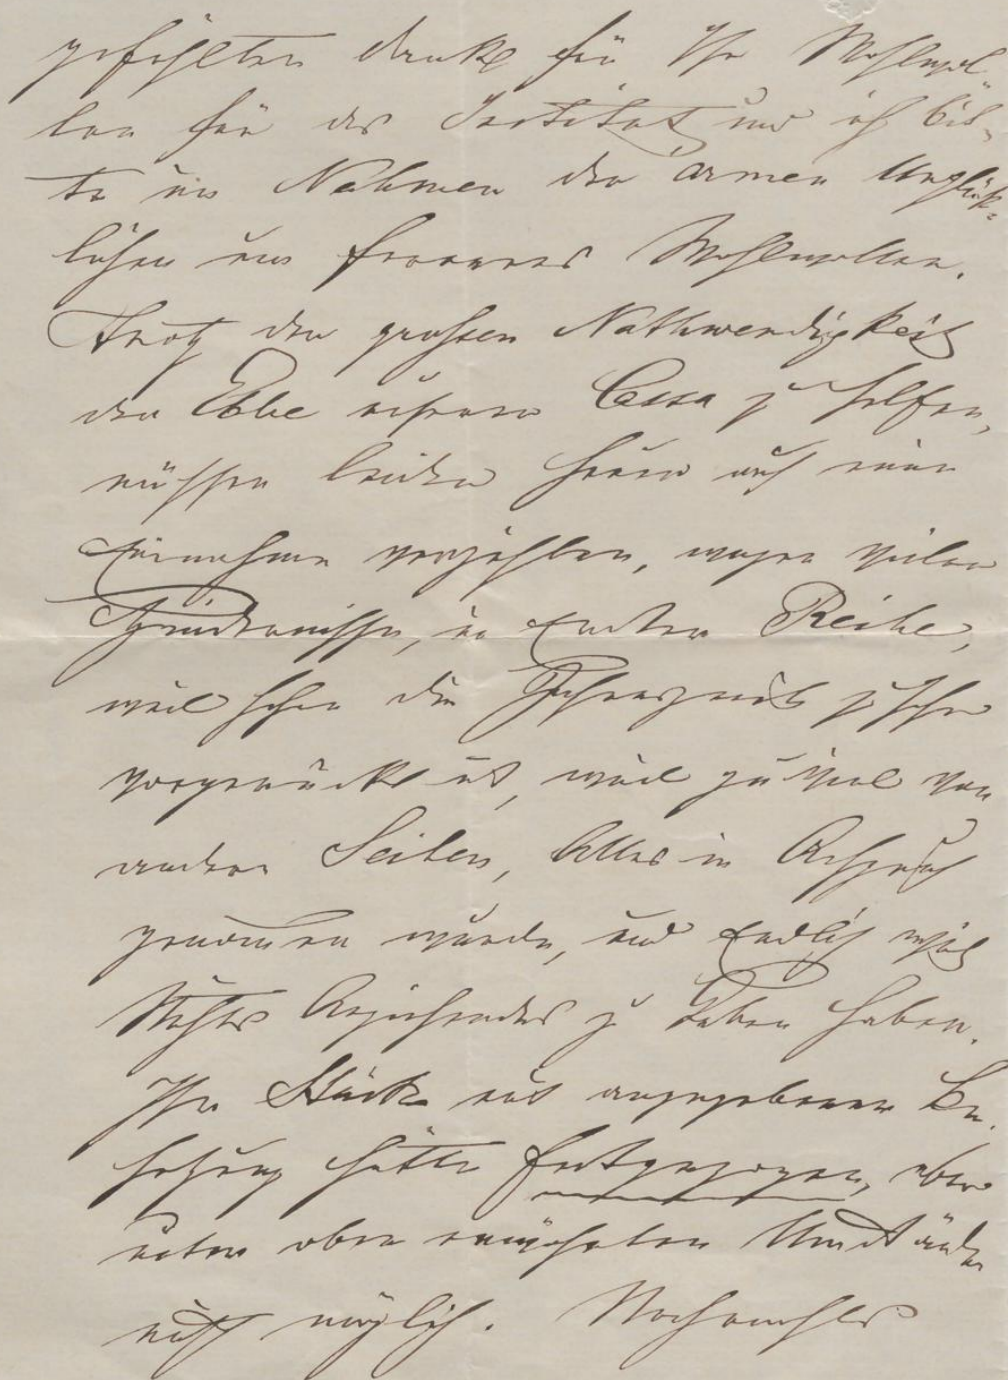 gefühlten Danke für Ihr Wohlwol-
len für das Institut und ich bit-
te im Nahmen der armen Unglük-
lichen um ferneres Wohlwollen.
Trotz der grossen Nathwendigkeit
der Ebbe unserer Cassa zu helfen,
müssen leider heuer auf eine
Einnahme verzichten, wegen vielen
Hindernisse, in Erster Reihe,
weil schon die Jahreszeit zu sehr
vorgerückt ist, weil zu viel von
andern Seiten, Alles in Anspruch
genommen wurde, und Endlich weil
Nichts Anziehendes zu haben.
Ihr Stück mit angegebener Be-
setzung hätte festgezogen, aber
unter oben erwähnten Umstände
nicht möglich. Nochmahls